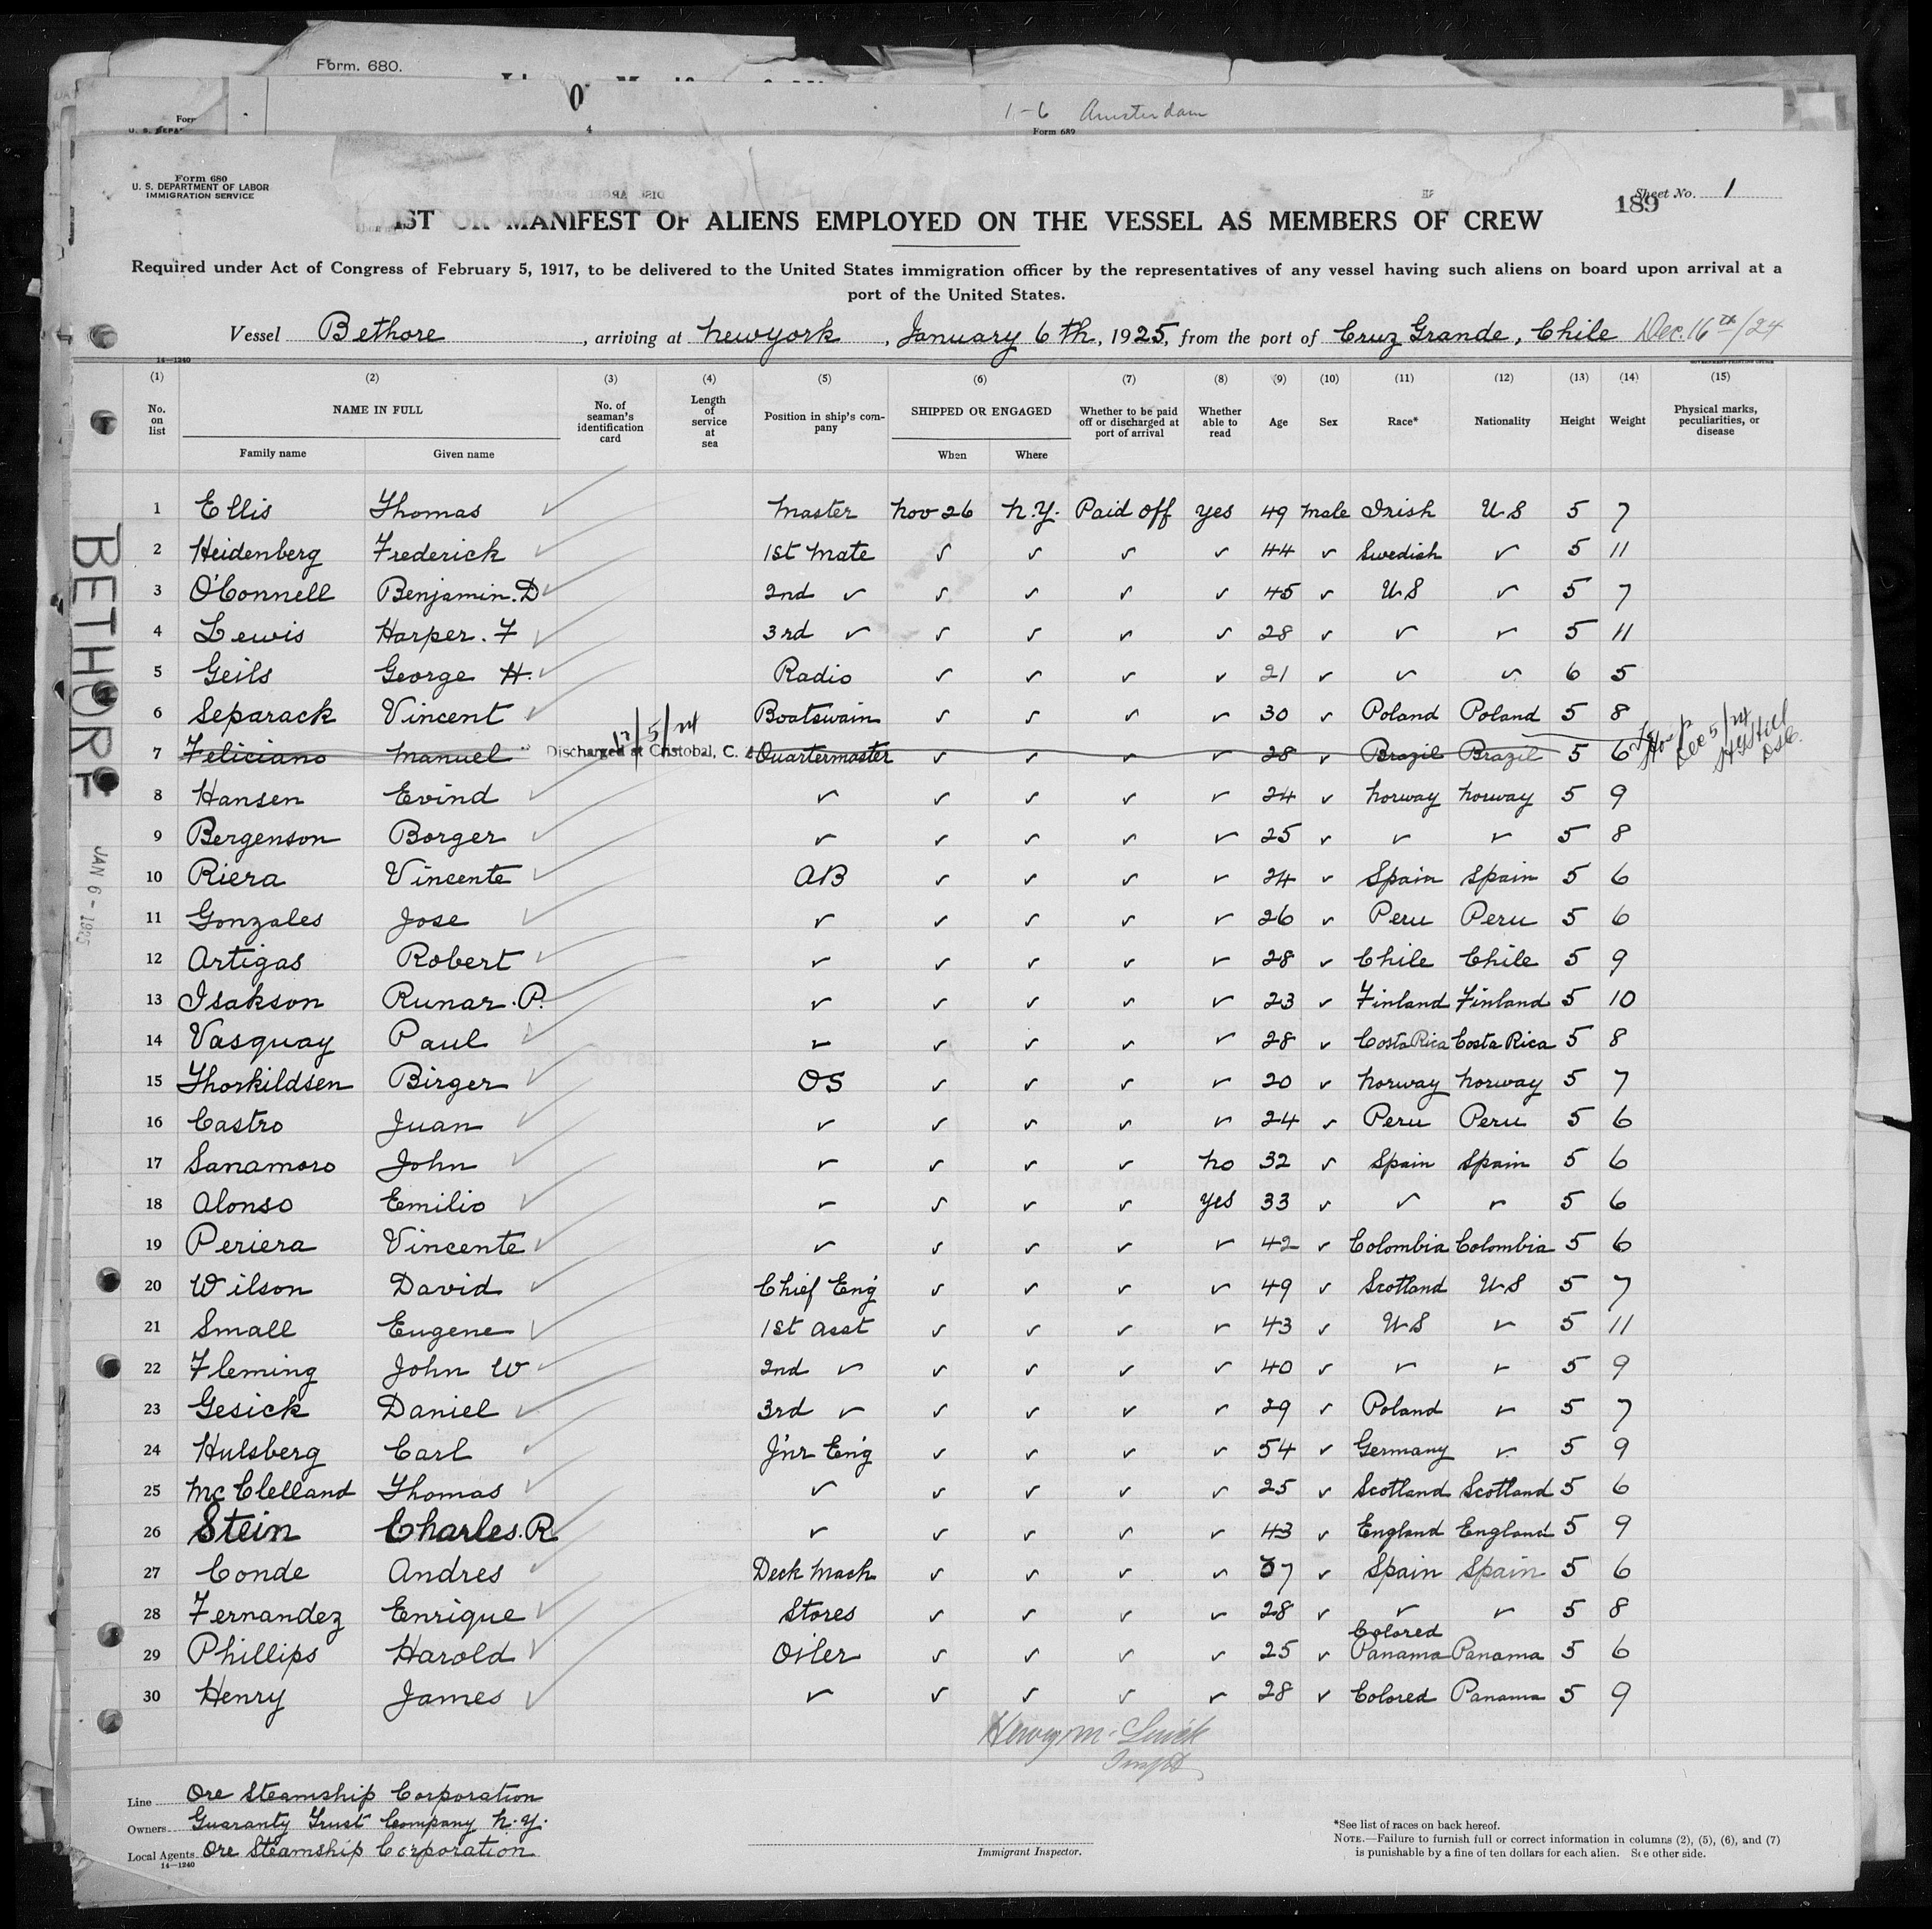 Form. 680.
1-6 Amsterdam
Form 689
Form 680
U. S. DEPARTMENT OF LABOR
IMMIGRATION SERVICE
189
Sheet No. 1
LIST OR MANIFEST OF ALIENS EMPLOYED ON THE VESSEL AS MEMBERS OF CREW
Required under Act of Congress of February 5, 1917, to be delivered to the United States immigration officer by the representatives of any vessel having such aliens on board upon arrival at a
port of the United States.
Vessel Bethore, arriving at New York, January 6th, 1925, from the port of Cruz Grande, Chile Dec. 16th/24
14—1240 GOVERNMENT PRINTING OFFICE
(1) (2) (3) (4) (5) (6) (7) (8) (9) (10) (11) (12) (13) (14) (15)
No. on list NAME IN FULL No. of seaman's identification card Length of service at sea Position in ship's company SHIPPED OR ENGAGED Whether to be paid off or discharged at port of arrival Whether able to read Age Sex Race* Nationality Height Weight Physical marks, peculiarities, or disease
Family name Given name When Where
1 Ellis Thomas ✓ Master Nov 26 N.Y. Paid off Yes 49 Male Irish US 5 7
2 Heidenberg Frederick ✓ 1st Mate ✓ ✓ ✓ ✓ 44 ✓ Swedish ✓ 5 11
3 O'Connell Benjamin. D ✓ 2nd ✓ ✓ ✓ ✓ ✓ 45 ✓ US ✓ 5 7
4 Lewis Harper. F ✓ 3rd ✓ ✓ ✓ ✓ ✓ 28 ✓ ✓ ✓ 5 11
5 Geils George H. ✓ Radio ✓ ✓ ✓ ✓ 21 ✓ ✓ ✓ 6 5
6 Separack Vincent ✓ Boatswain ✓ ✓ ✓ ✓ 30 ✓ Poland Poland 5 8
12/5/24
7 Feliciano Manuel Discharged at Cristobal, C. Z. Quartermaster ✓ ✓ ✓ ✓ 28 ✓ Brazil Brazil 5 6 Dec 5/24
8 Hansen Evind ✓ ✓ ✓ ✓ ✓ ✓ 24 ✓ Norway Norway 5 9
9 Bergenson Borger ✓ ✓ ✓ ✓ ✓ ✓ 25 ✓ ✓ ✓ 5 8
10 Riera Vincente ✓ AB ✓ ✓ ✓ ✓ 24 ✓ Spain Spain 5 6
11 Gonzales Jose ✓ ✓ ✓ ✓ ✓ ✓ 26 ✓ Peru Peru 5 6
12 Artigas Robert ✓ ✓ ✓ ✓ ✓ ✓ 28 ✓ Chile Chile 5 9
13 Isakson Runar. P. ✓ ✓ ✓ ✓ ✓ ✓ 23 ✓ Finland Finland 5 10
14 Vasquay Paul ✓ ✓ ✓ ✓ ✓ ✓ 28 ✓ Costa Rica Costa Rica 5 8
15 Thorkildsen Birger ✓ OS ✓ ✓ ✓ ✓ 20 ✓ Norway Norway 5 7
16 Castro Juan ✓ ✓ ✓ ✓ ✓ ✓ 24 ✓ Peru Peru 5 6
17 Sanamoro John ✓ ✓ ✓ ✓ ✓ No 32 ✓ Spain Spain 5 6
18 Alonso Emilio ✓ ✓ ✓ ✓ ✓ Yes 33 ✓ ✓ ✓ 5 6
19 Periera Vincente ✓ ✓ ✓ ✓ ✓ ✓ 42 ✓ Colombia Colombia 5 6
20 Wilson David ✓ Chief Eng ✓ ✓ ✓ ✓ 49 ✓ Scotland US 5 7
21 Small Eugene ✓ 1st Asst ✓ ✓ ✓ ✓ 43 ✓ US ✓ 5 11
22 Fleming John W ✓ 2nd ✓ ✓ ✓ ✓ ✓ 40 ✓ ✓ ✓ 5 9
23 Gesick Daniel ✓ 3rd ✓ ✓ ✓ ✓ ✓ 29 ✓ Poland ✓ 5 7
24 Hulsberg Carl ✓ J'nr Eng ✓ ✓ ✓ ✓ 54 ✓ Germany ✓ 5 9
25 McClelland Thomas ✓ ✓ ✓ ✓ ✓ ✓ 25 ✓ Scotland Scotland 5 6
26 Stein Charles. R ✓ ✓ ✓ ✓ ✓ ✓ 43 ✓ England England 5 9
27 Conde Andres ✓ Deck Mach ✓ ✓ ✓ ✓ 37 ✓ Spain Spain 5 6
28 Fernandez Enrique ✓ Stores ✓ ✓ ✓ ✓ 28 ✓ ✓ ✓ 5 8
29 Phillips Harold ✓ Oiler ✓ ✓ ✓ ✓ 25 ✓ Colored Panama Panama 5 6
30 Henry James ✓ ✓ ✓ ✓ ✓ ✓ 28 ✓ Colored Panama 5 9
BETHORE
JAN 6 - 1925
Line Ore Steamship Corporation
Owners Guaranty Trust Company N.Y.
Local Agents Ore Steamship Corporation
14—1240
Immigrant Inspector.
*See list of races on back hereof.
NOTE.—Failure to furnish full or correct information in columns (2), (5), (6), and (7)
is punishable by a fine of ten dollars for each alien. See other side.